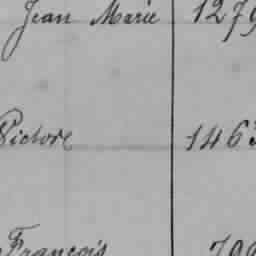 Jean Marie 1279
Victore 1463
François 709